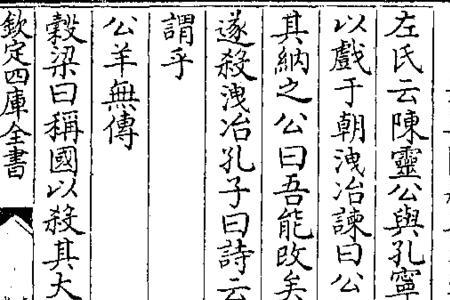 左氏云陳靈公與孔寧
以戲于朝洩冶諫曰公
其納之公曰吾能改矣
遂殺洩冶孔子曰詩云
謂乎
公羊無傳
穀梁曰稱國以殺其大
欽定四庫全書